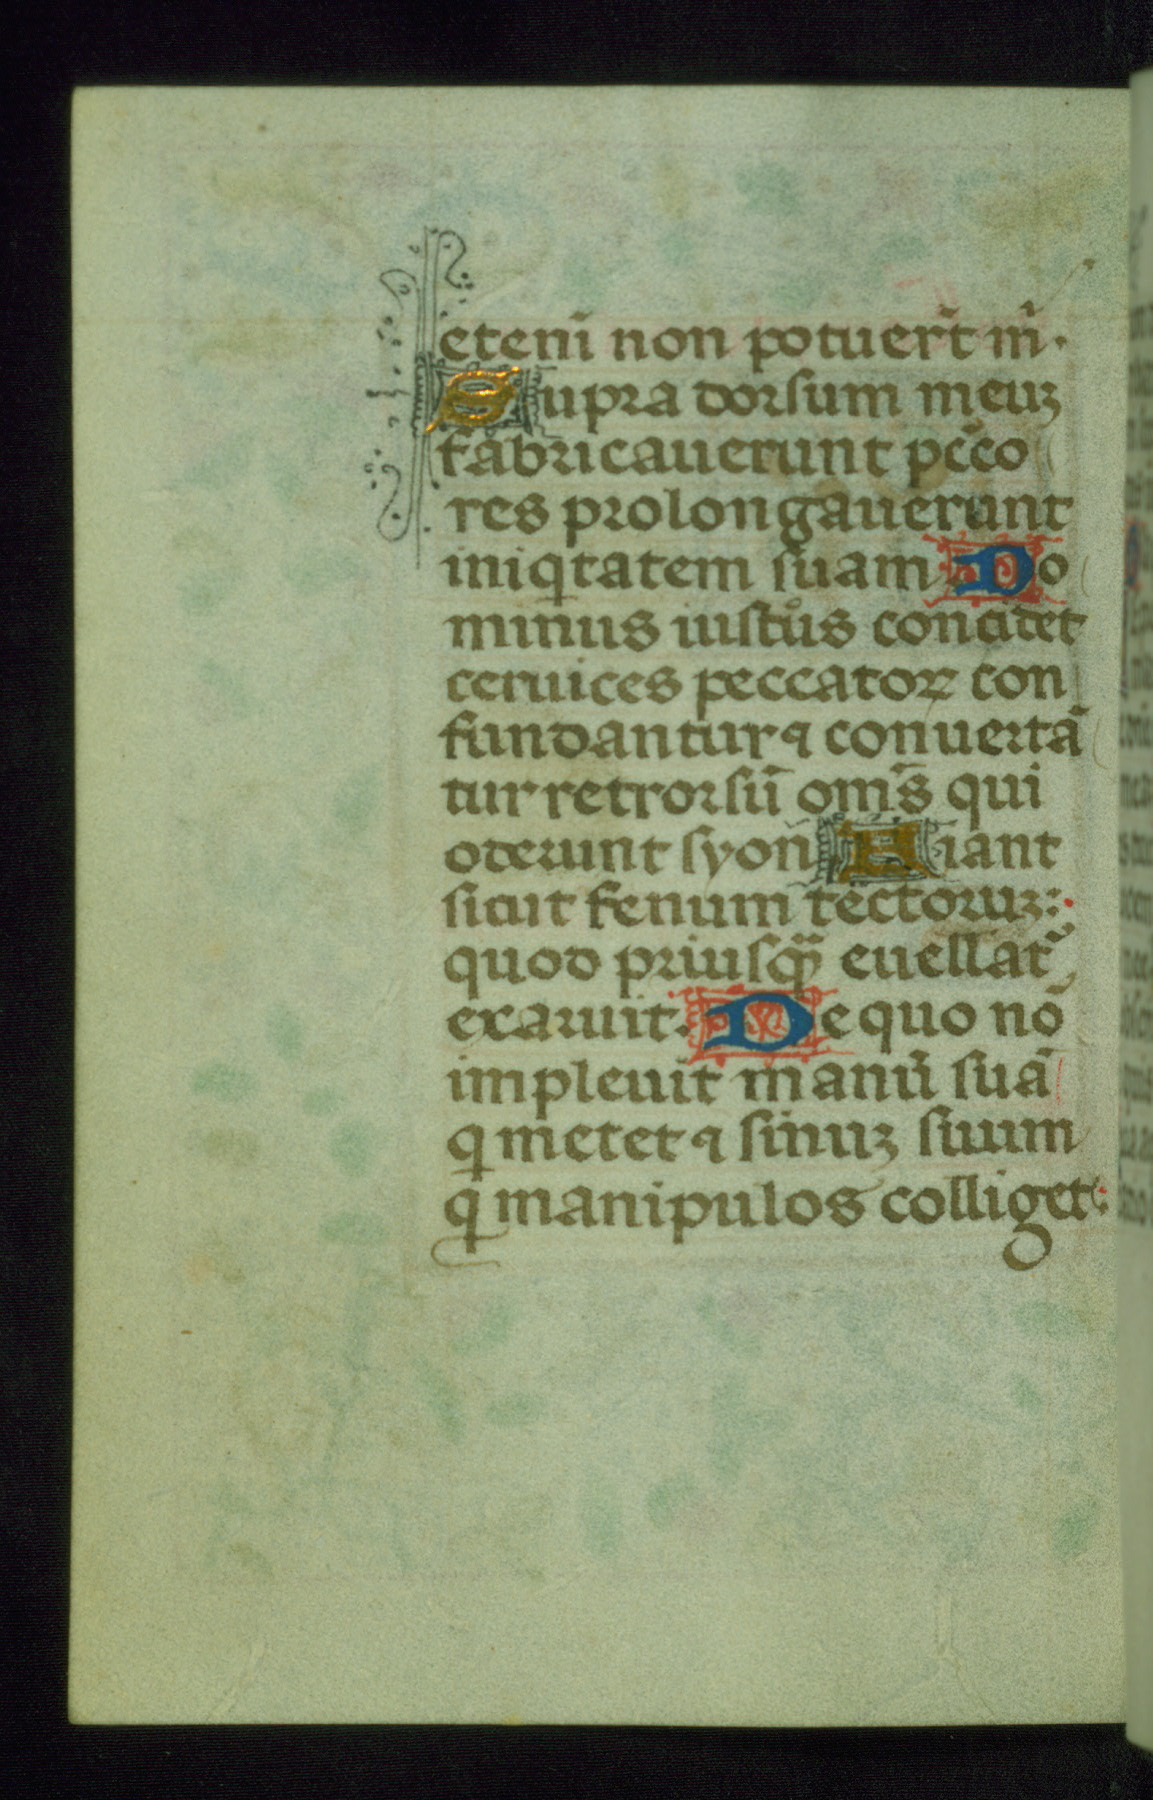 etenī non potuer̄t m̄.
Supra dorsum meuꝫ
fabricauerunt pcc̄o
res prolongauerunt
iniqtatem suam Do
minus iustus concidet
ceruices peccatoꝝ con
fundantur ⁊ conuertā
tur retrorsū om̄s qui
oderunt syon Fiant
sicut fenum tectoruꝫ:
quod priusꝙ̄ euellat᷑
exaruit. De quo nō
impleuit manū suā
qͥ metet ⁊ sinuꝫ suum
qͥ manipulos colliget: